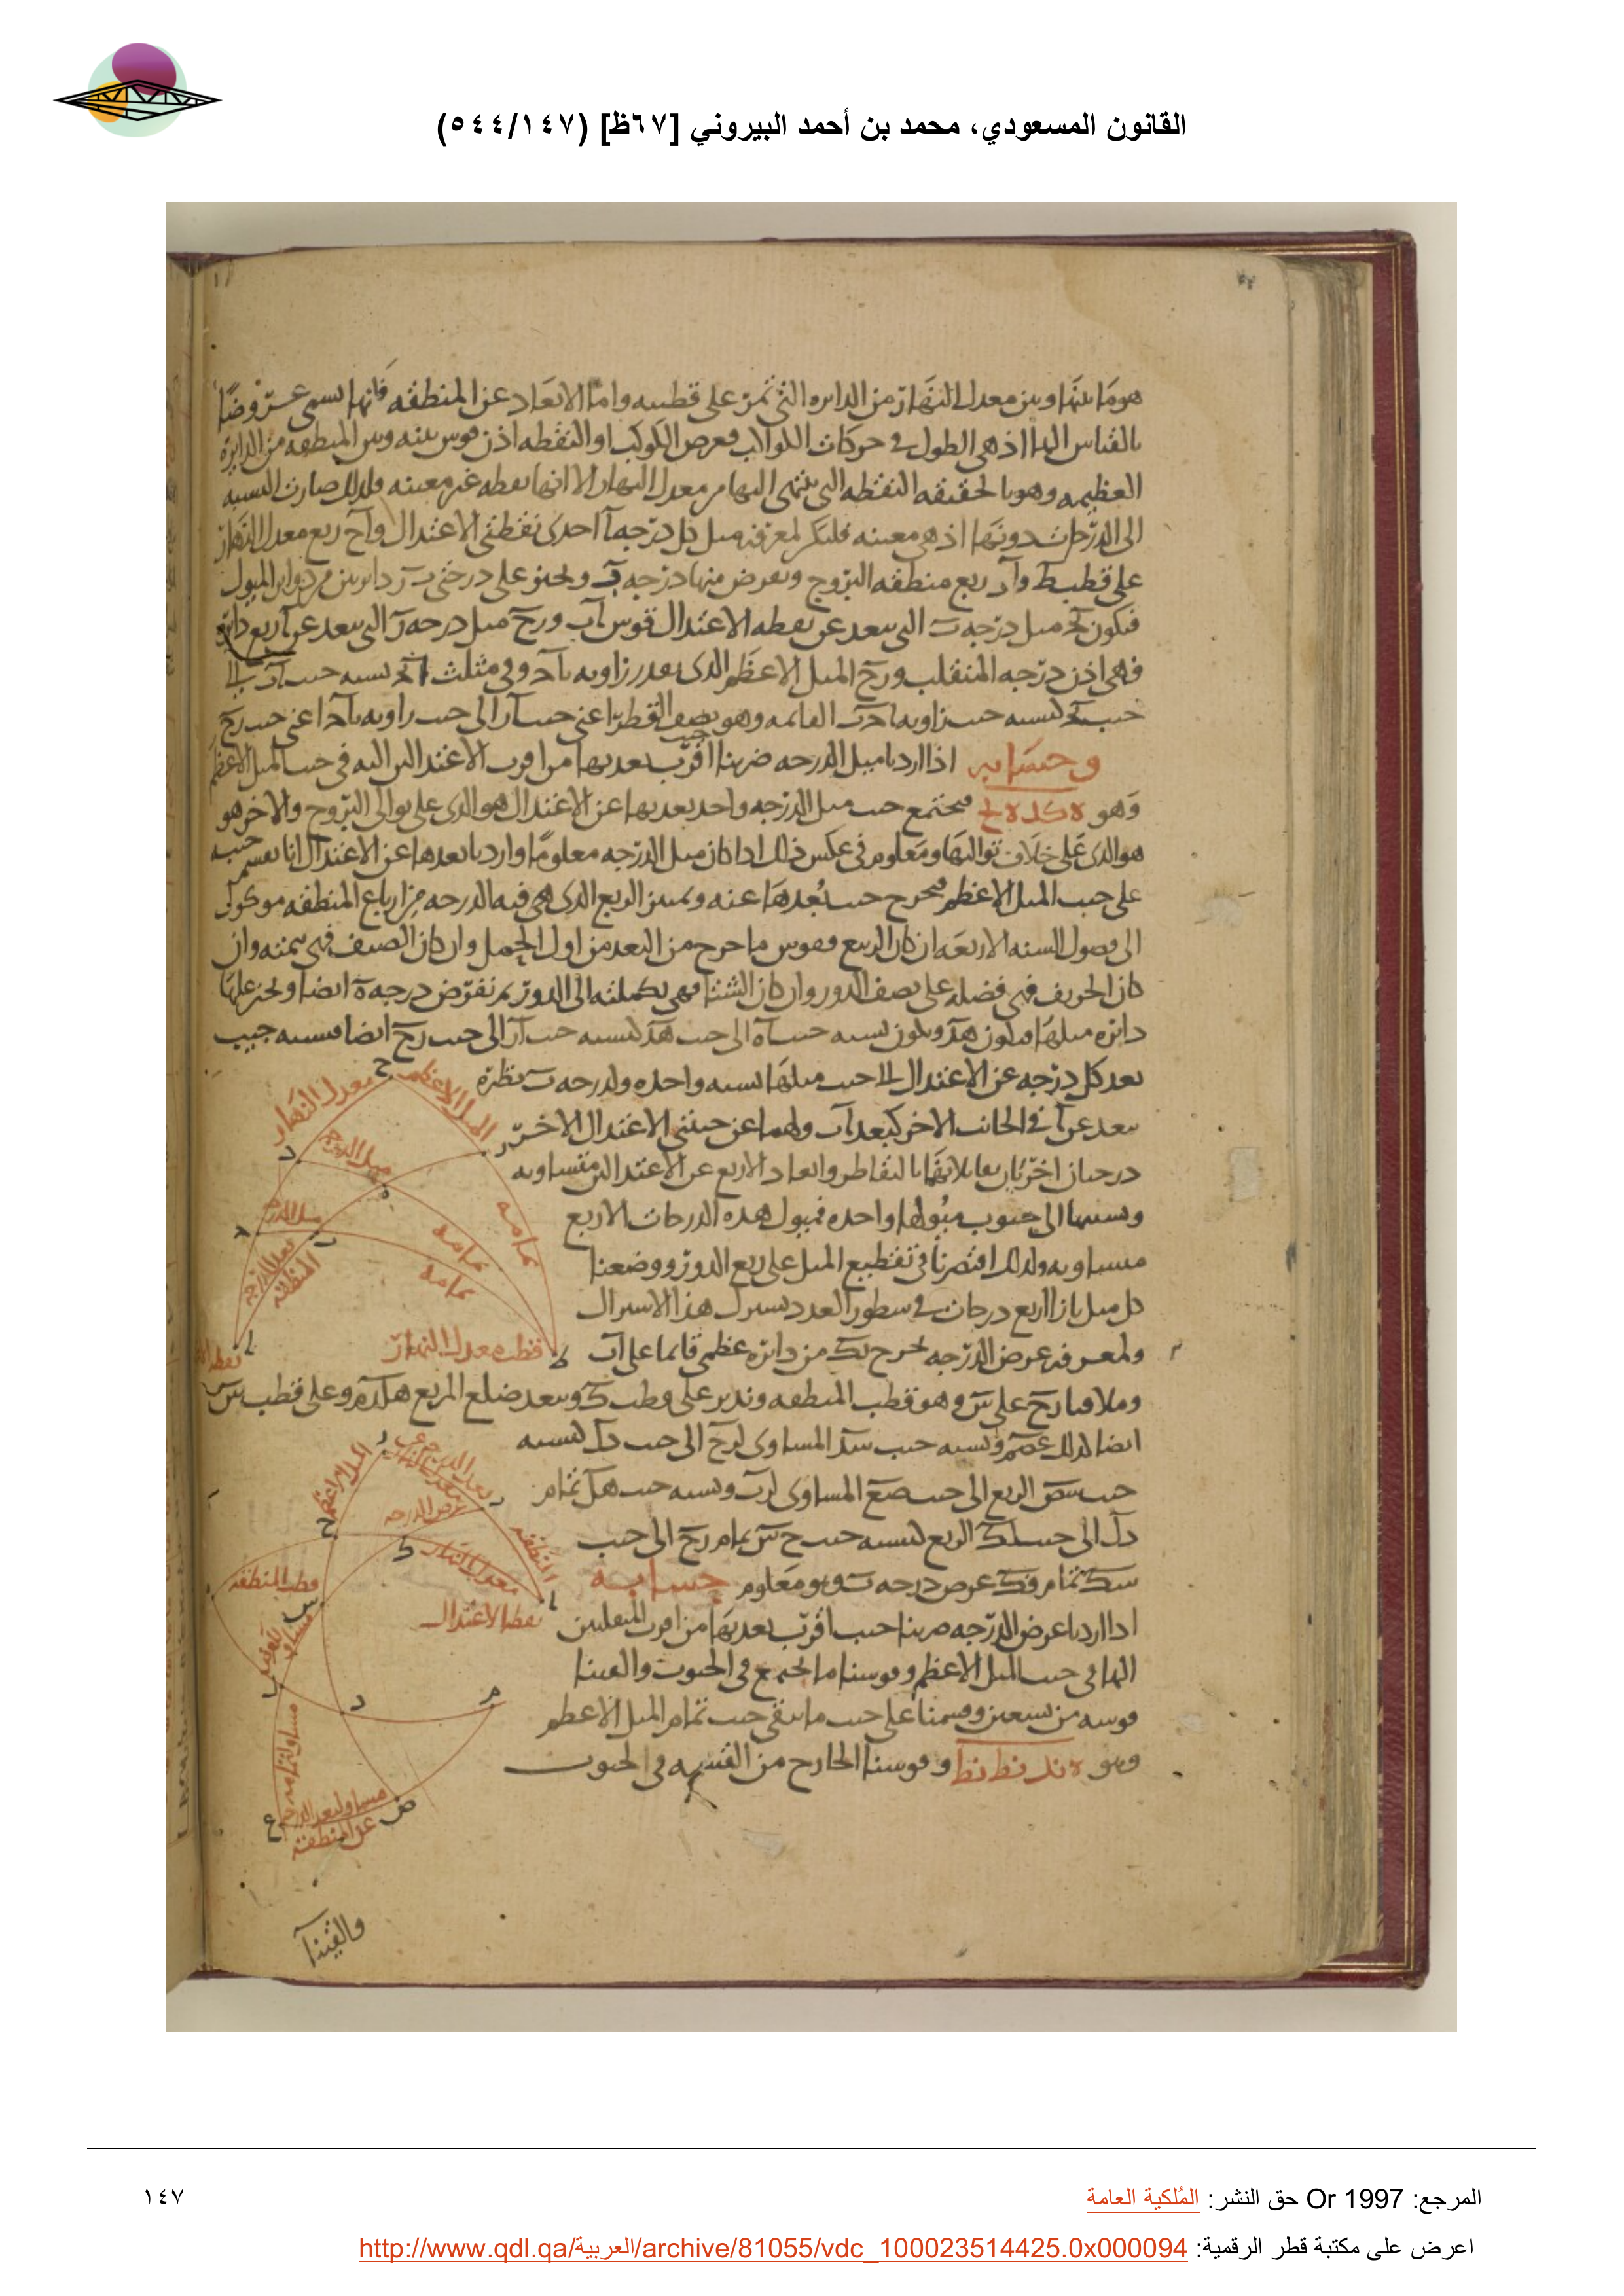 القانون المسعودي، محمد بن أحمد البيروني [٦٧ظ] (٥٤٤/١٤٧)
هو ما بينها وبين معدل النهار من الدائره التي تمر على قطبيه واما الابعاد عن المنطقه فانها تسمى عروضًا
بالقياس اليها اذ هي الطول في حركات الكواكب فعرض الكوكب او النقطه اذن قوس بينه وبين المنطقه من الدايرة
العظيمه وهو بالحقيقه النقطه التي ينتهي اليها من معدل النهار الا انها نقطه غير معينه فلذلك صارت النسبه
الى الدرجات دونها اذ هي معينه فليكن لمعرفه ميل كل درجه آ احدى نقطتي الاعتدال وآح ربع معدل النهار
على قطب ط وآر ربع منطقه البروج ونفرض منها درجه ب ونجيز على درجتي ب ر دايرتين من دواير الميول
فيكون ميل درجه ب التي بعد عن نقطه الاعتدال قوس آب ورح ميل درجه ر التي بعد عن آ ربع دائره
فهي اذن درجه المنقلب ورح الميل الاعظم الذي بقدر زاويه وفي مثلث نسبه جيب آب الى
جيب كنسبه جيب زاويه القائمه وهو نصف القطر اعني جيب آر الى جيب زاويه اعني جيب رح
وحسابه اذا اردنا ميل الدرجه ضربنا جيب اقرب بعديها من اقرب الاعتدالين اليه في جيب الميل الاعظم
وهو ه كد ه لح فيجتمع جيب ميل الدرجه واحد بعديها عن الاعتدال هو الذي على توالي البروج والاخر هو
هو الذي على خلاف تواليها ومعلوم في عكس ذلك اذا كان ميل الدرجه معلومًا واردنا بعدها عن الاعتدال انا نقسم جيبه
على جيب الميل الاعظم فيخرج جيب بُعدها عنه وتمييز الربع الذي هي فيه الدرجه من ارباع المنطقه موكول
الى فصول السنه الاربعه ان كان الربيع فقوس ما خرج من البعد من اول الحمل وان كان الصيف فهي تتمته وان
كان الخريف فهي فضله على نصف الدور وان كان الشتا فهي تكملته الى الدور ثم نفرض درجه ه ايضا ونجيز عليها
دائره ميلها فيكون هد وتكون نسبه جيب آه الى جيب هد كنسبه جيب آر الى جيب رح ايضا فنسبه جيب
بعد كل درجه عن الاعتدال الى جيب ميلها نسبه واحده ولدرجه ب نظيرة
بعد عن آ في الجانب الاخر كبعد آب ولهما عن جنبتي الاعتدال الاخر
درجتان اخريان تقابلانهما بالتقاطر وابعاد الاربع عن الاعتدالين متساويه
ونسبها الى جيوب ميولها واحده فميول هذه الدرجات الاربع
متساويه ولذلك اقتصرنا في تقطيع الميل على ربع الدور ووضعنا
كل ميل بازا اربع درجات في سطور العدد تشترك هذا الاشتراك
ولمعرفه عرض الدرجه نخرج بك من دائره عظمى قائما على آب
وملاقيا رح على س وهو قطب المنطقه وندير على قطب ك وببعد ضلع المربع وعلى قطب س
ايضا كذلك ونسبه جيب المساوي لرح الى جيب كنسبه
جيب سص الربع الى جيب صع المساوي لرب ونسبه جيب هل تمام
الى جيب لك الربع كنسبه جيب ح س تمام رح الى جيب
سك تمام بك عرض درجه ب ومعلوم حسابه
اذا اردنا عرض الدرجه ضربنا جيب اقرب بعديها من اقرب المنقلبين
اليها في جيب الميل الاعظم وقوسنا ما اجتمع في الجيوب والقينا
قوسه من تسعين وقسمنا على جيب ما بقي جيب تمام الميل الاعظم
وهو ه ند نط نط وقوسنا الخارج من القسمه في الجيوب
والقينا
معدل النهار
الميل الاعظم
ميل الدرجه
تمامه
تمامه
تمامه
ميل الدرجه
بعد الدرجه
المنطقه
قطب معدل النهار
الميل الاعظم
عرض الدرجه
المنطقه
معدل النهار
نقطه الاعتدال
قطب المنطقه
مساو لبعد الدرجه
عن المنطقه
المرجع: Or 1997 حق النشر: المُلكية العامة
١٤٧
اعرض على مكتبة قطر الرقمية: http://www.qdl.qa/العربية/archive/81055/vdc_100023514425.0x000094